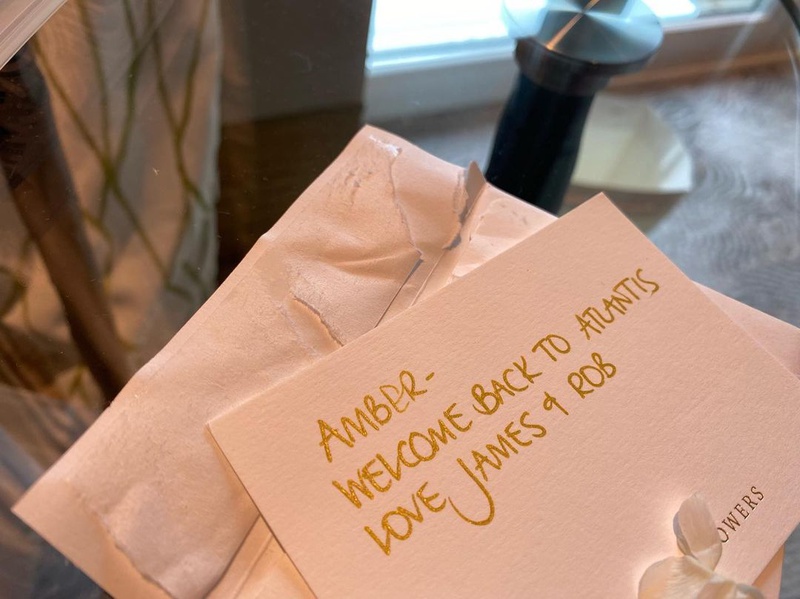 AMBER-
WELCOME BACK TO ATLANTIS
LOVE JAMES & ROB
OWERS